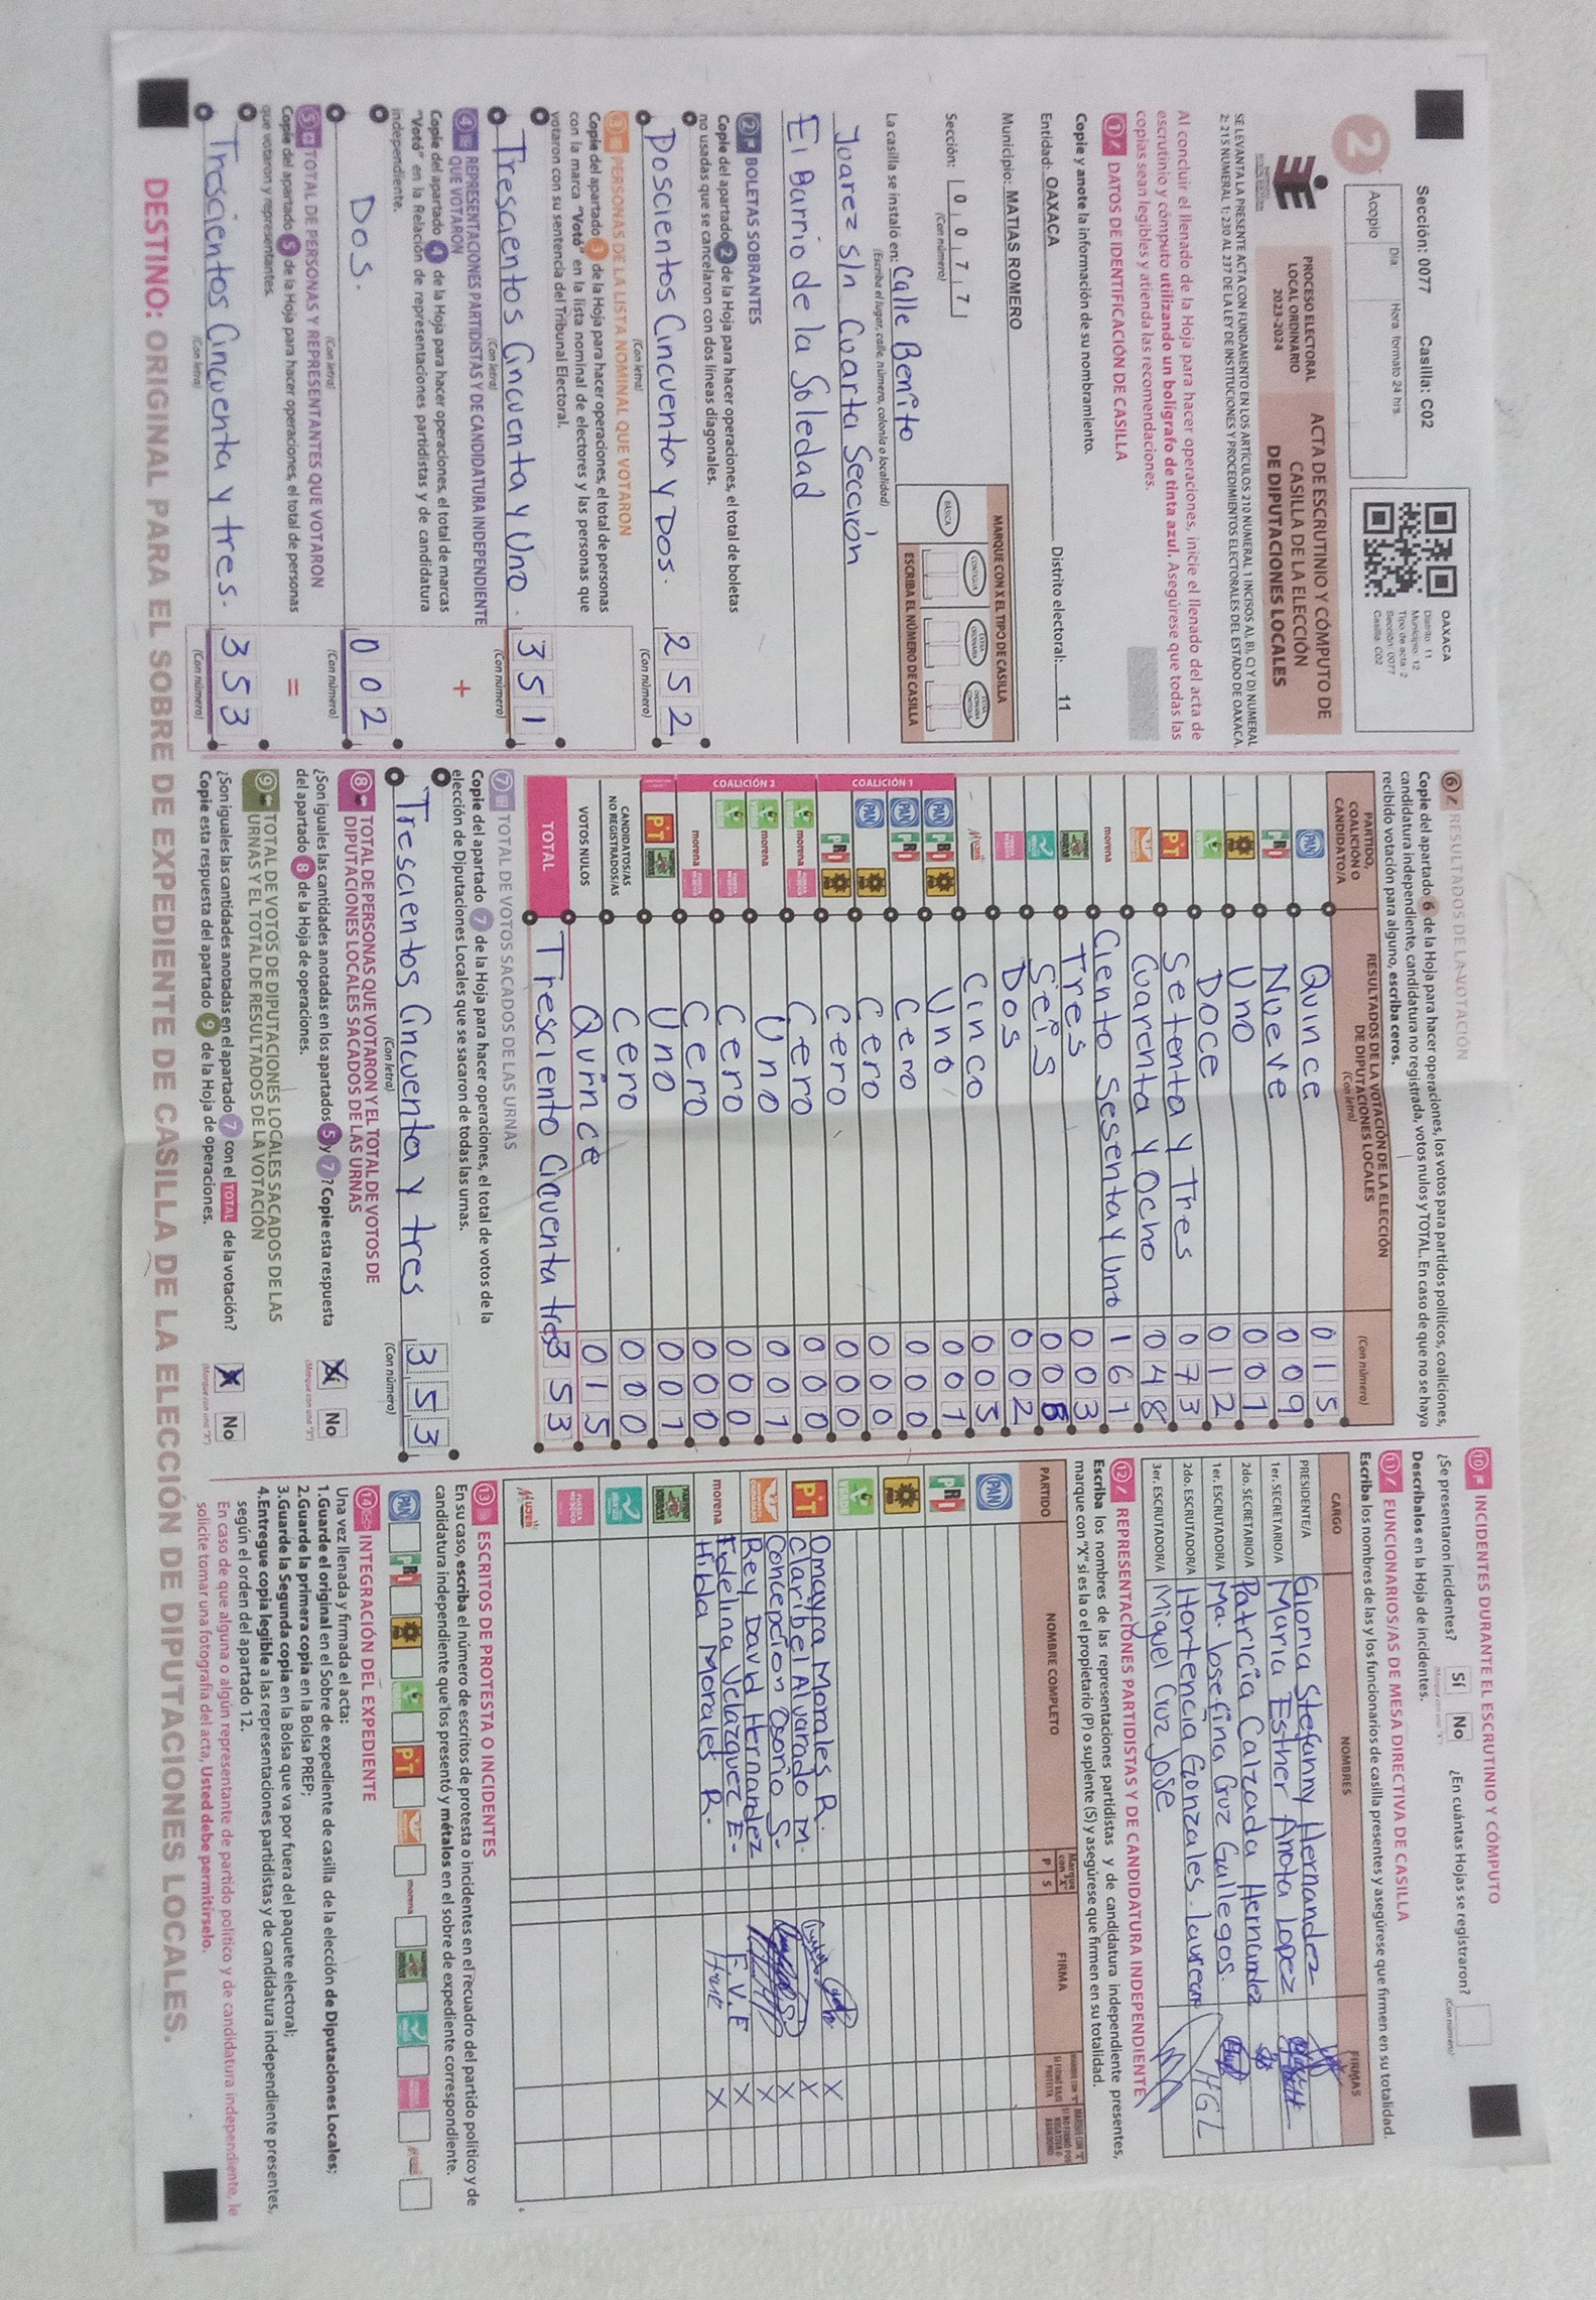 Sección: 0077 Casilla: C02
Día Hora formato 24 hrs.
Acopio
2
OAXACA
Distrito: 11
Municipio: 12
Tipo de acta: 2
Sección: 0077
Casilla: C02
PROCESO ELECTORAL
LOCAL ORDINARIO
2023-2024
ACTA DE ESCRUTINIO Y CÓMPUTO DE
CASILLA DE LA ELECCIÓN
DE DIPUTACIONES LOCALES
SE LEVANTA LA PRESENTE ACTA CON FUNDAMENTO EN LOS ARTÍCULOS 210 NUMERAL 1 INCISOS A), B), C) Y D) NUMERAL
2; 215 NUMERAL 1; 230 AL 237 DE LA LEY DE INSTITUCIONES Y PROCEDIMIENTOS ELECTORALES DEL ESTADO DE OAXACA.
Al concluir el llenado de la Hoja para hacer operaciones, inicie el llenado del acta de
escrutinio y cómputo utilizando un bolígrafo de tinta azul. Asegúrese que todas las
copias sean legibles y atienda las recomendaciones.
1 DATOS DE IDENTIFICACIÓN DE CASILLA
Copie y anote la información de su nombramiento.
Entidad: OAXACA Distrito electoral: 11
Municipio: MATIAS ROMERO
Sección: 0 0 7 7
(Con número)
MARQUE CON X EL TIPO DE CASILLA
BÁSICA CONTIGUA EXTRA ORDINARIA EXTRA ORDINARIA CONTIGUA
ESCRIBA EL NÚMERO DE CASILLA
La casilla se instaló en: Calle Benito
(Escriba el lugar, calle, número, colonia o localidad)
Juarez s/n Cuarta Sección
El Barrio de la Soledad
2 BOLETAS SOBRANTES
Copie del apartado 2 de la Hoja para hacer operaciones, el total de boletas
no usadas que se cancelaron con dos líneas diagonales.
Doscientos Cincuenta y Dos. 2 5 2
(Con letra) (Con número)
3 PERSONAS DE LA LISTA NOMINAL QUE VOTARON
Copie del apartado 3 de la Hoja para hacer operaciones, el total de personas
con la marca "Votó" en la lista nominal de electores y las personas que
votaron con su sentencia del Tribunal Electoral.
Tresciento s Cincuenta y Uno. 3 5 1
(Con letra) (Con número)
4 REPRESENTACIONES PARTIDISTAS Y DE CANDIDATURA INDEPENDIENTE
QUE VOTARON
+
Copie del apartado 4 de la Hoja para hacer operaciones, el total de marcas
"Votó" en la Relación de representaciones partidistas y de candidatura
independiente.
Dos. 0 0 2
(Con letra) (Con número)
5 TOTAL DE PERSONAS Y REPRESENTANTES QUE VOTARON
=
Copie del apartado 5 de la Hoja para hacer operaciones, el total de personas
que votaron y representantes.
Trescientos Cincuenta y tres. 3 5 3
(Con letra) (Con número)
6 RESULTADOS DE LA VOTACIÓN
Copie del apartado 6 de la Hoja para hacer operaciones, los votos para partidos políticos, coaliciones,
candidatura independiente, candidatura no registrada, votos nulos y TOTAL. En caso de que no se haya
recibido votación para alguno, escriba ceros.
PARTIDO, COALICIÓN O CANDIDATO/A
RESULTADOS DE LA VOTACIÓN DE LA ELECCIÓN
DE DIPUTACIONES LOCALES
(Con letra) (Con número)
PAN Quince 0 1 5
PRI Nueve 0 0 9
PRD Uno 0 0 1
VERDE Doce 0 1 2
PT Setenta y Tres 0 7 3
Cuarenta y Ocho 0 4 8
morena Ciento Sesenta y Uno 1 6 1
Tres 0 0 3
Seis 0 0 6
Dos 0 0 2
Mujer Cinco 0 0 5
COALICIÓN 1
PAN PRI PRD Uno 0 0 1
PAN PRI Cero 0 0 0
PAN PRD Cero 0 0 0
PRI PRD Cero 0 0 0
COALICIÓN 2
VERDE morena Cero 0 0 0
VERDE morena Uno 0 0 1
VERDE Cero 0 0 0
morena Cero 0 0 0
PT Uno 0 0 1
CANDIDATOS/AS
NO REGISTRADOS/AS Cero 0 0 0
VOTOS NULOS Quince 0 1 5
TOTAL Tresciento Cincuenta tres 3 5 3
7 TOTAL DE VOTOS SACADOS DE LAS URNAS
Copie del apartado 7 de la Hoja para hacer operaciones, el total de votos de la
elección de Diputaciones Locales que se sacaron de todas las urnas.
Trescientos Cincuenta y tres 3 5 3
(Con letra) (Con número)
8 TOTAL DE PERSONAS QUE VOTARON Y EL TOTAL DE VOTOS DE
DIPUTACIONES LOCALES SACADOS DE LAS URNAS
¿Son iguales las cantidades anotadas en los apartados 5 y 7? Copie esta respuesta
del apartado 8 de la Hoja de operaciones.
X Sí No
(Marque con una "X")
9 TOTAL DE VOTOS DE DIPUTACIONES LOCALES SACADOS DE LAS
URNAS Y EL TOTAL DE RESULTADOS DE LA VOTACIÓN
¿Son iguales las cantidades anotadas en el apartado 7 con el TOTAL de la votación?
Copie esta respuesta del apartado 9 de la Hoja de operaciones.
X No
(Marque con una "X")
10 INCIDENTES DURANTE EL ESCRUTINIO Y CÓMPUTO
¿Se presentaron incidentes? Sí No ¿En cuántas Hojas se registraron?
(Marque con una "X") (Con número)
Descríbalos en la Hoja de incidentes.
11 FUNCIONARIOS/AS DE MESA DIRECTIVA DE CASILLA
Escriba los nombres de las y los funcionarios de casilla presentes y asegúrese que firmen en su totalidad.
CARGO NOMBRES FIRMAS
PRESIDENTE/A Gloria Stefanny Hernandez
1er. SECRETARIO/A Maria Esther Anota Lopez
2do. SECRETARIO/A Patricia Calzada Hernandez
1er. ESCRUTADOR/A Ma. Josefina Cruz Gallegos.
2do. ESCRUTADOR/A Hortencia Gonzales. HGL
3er. ESCRUTADOR/A Miguel Cruz Jose
12 REPRESENTACIONES PARTIDISTAS Y DE CANDIDATURA INDEPENDIENTE
Escriba los nombres de las representaciones partidistas y de candidatura independiente presentes,
marque con "X" si es la o el propietario (P) o suplente (S) y asegúrese que firmen en su totalidad.
PARTIDO NOMBRE COMPLETO Marque con "X" P S FIRMA
PAN
PRI
PRD
VERDE Omayra Morales R. X
PT Claribel Alvarado M. X
Concepcion Osorio S. X
Rey David Hernandez X
Fidelina Velazquez E. F.V.E X
morena Hilda Morales R. X
Mujer
13 ESCRITOS DE PROTESTA O INCIDENTES
En su caso, escriba el número de escritos de protesta o incidentes en el recuadro del partido político y de
candidatura independiente que los presentó y métalos en el sobre de expediente correspondiente.
PAN PRI PRD VERDE PT morena
14 INTEGRACIÓN DEL EXPEDIENTE
Una vez llenada y firmada el acta:
1. Guarde el original en el Sobre de expediente de casilla de la elección de Diputaciones Locales;
2. Guarde la primera copia en la Bolsa PREP;
3. Guarde la Segunda copia en la Bolsa que va por fuera del paquete electoral;
4. Entregue copia legible a las representaciones partidistas y de candidatura independiente presentes,
según el orden del apartado 12.
En caso de que alguna o algún representante de partido político y de candidatura independiente, le
solicite tomar una fotografía del acta, Usted debe permitírselo.
DESTINO: ORIGINAL PARA EL SOBRE DE EXPEDIENTE DE CASILLA DE LA ELECCIÓN DE DIPUTACIONES LOCALES.